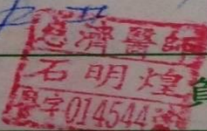 慈濟醫師
石明煌
醫字014544